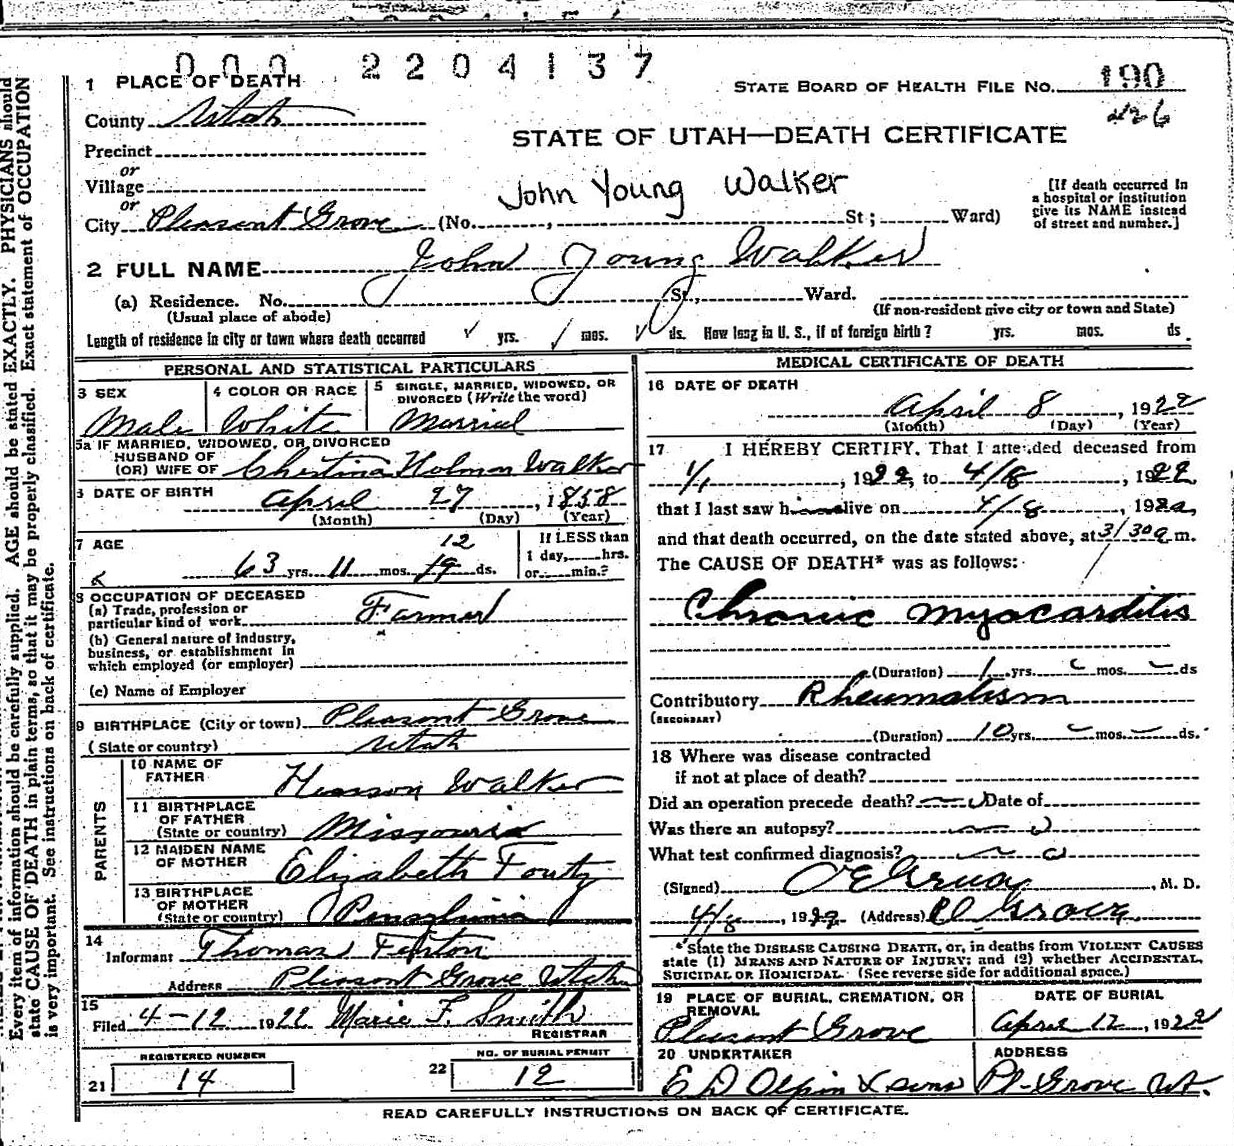 0 0 0 2 2 0 4 1 3 7
1 PLACE OF DEATH
STATE BOARD OF HEALTH FILE NO. 190
426
County Utah
STATE OF UTAH—DEATH CERTIFICATE
Precinct
or
Village
John Young Walker
or
City Pleasant Grove (No. , St; Ward)
[If death occurred in
a hospital or institution
give its NAME instead
of street and number.]
2 FULL NAME John Young Walker
(a) Residence. No. St., Ward.
(Usual place of abode)
(If non-resident give city or town and State)
Length of residence in city or town where death occurred yrs. mos. ds. How long in U. S., if of foreign birth? yrs. mos. ds.
PERSONAL AND STATISTICAL PARTICULARS
3 SEX
Male
4 COLOR OR RACE
White
5 SINGLE, MARRIED, WIDOWED, OR
DIVORCED (Write the word)
Married
5a IF MARRIED, WIDOWED, OR DIVORCED
HUSBAND OF
(OR) WIFE OF Christina Holman Walker
6 DATE OF BIRTH April 27, 1858
(Month) (Day) (Year)
7 AGE
12
63 yrs. 11 mos. 19 ds.
If LESS than
1 day, hrs.
or min.?
8 OCCUPATION OF DECEASED
(a) Trade, profession or
particular kind of work Farmer
(b) General nature of industry,
business, or establishment in
which employed (or employer)
(c) Name of Employer
9 BIRTHPLACE (City or town) Pleasant Grove
(State or country) Utah
PARENTS
10 NAME OF
FATHER Henson Walker
11 BIRTHPLACE
OF FATHER
(State or country) Missouria
12 MAIDEN NAME
OF MOTHER Elizabeth Foutz
13 BIRTHPLACE
OF MOTHER
(State or country)
14
Informant Thomas Fenton
Address Pleasant Grove Utah
15
Filed 4-12 1922 Marie F. Smith
REGISTRAR
REGISTERED NUMBER
21 14
NO. OF BURIAL PERMIT
22 12
MEDICAL CERTIFICATE OF DEATH
16 DATE OF DEATH
April 8, 1922
(Month) (Day) (Year)
17 I HEREBY CERTIFY, That I attended deceased from
1/1, 1922, to 4/8, 1922
that I last saw h alive on 4/8, 1922
and that death occurred, on the date stated above, at 3/30 a m.
The CAUSE OF DEATH* was as follows:
Chronic myocarditis
(Duration) 1 yrs. mos. ds
Contributory Rheumatism
(SECONDARY)
(Duration) 10 yrs. mos. ds.
18 Where was disease contracted
if not at place of death?
Did an operation precede death? no Date of
Was there an autopsy? no
What test confirmed diagnosis? no
(Signed) , M. D.
4/8, 1922 (Address) Pl Grove
*State the DISEASE CAUSING DEATH, or, in deaths from VIOLENT CAUSES
state (1) MEANS AND NATURE OF INJURY; and (2) whether ACCIDENTAL,
SUICIDAL OR HOMICIDAL. (See reverse side for additional space.)
19 PLACE OF BURIAL, CREMATION, OR
REMOVAL
Pleasant Grove
DATE OF BURIAL
April 12, 1922
20 UNDERTAKER
E D Olpin & sons
ADDRESS
Pl-Grove Ut.
READ CAREFULLY INSTRUCTIONS ON BACK OF CERTIFICATE.
Every item of information should be carefully supplied. AGE should be stated EXACTLY. PHYSICIANS should
state CAUSE OF DEATH in plain terms, so that it may be properly classified. Exact statement of OCCUPATION
is very important. See instructions on back of certificate.